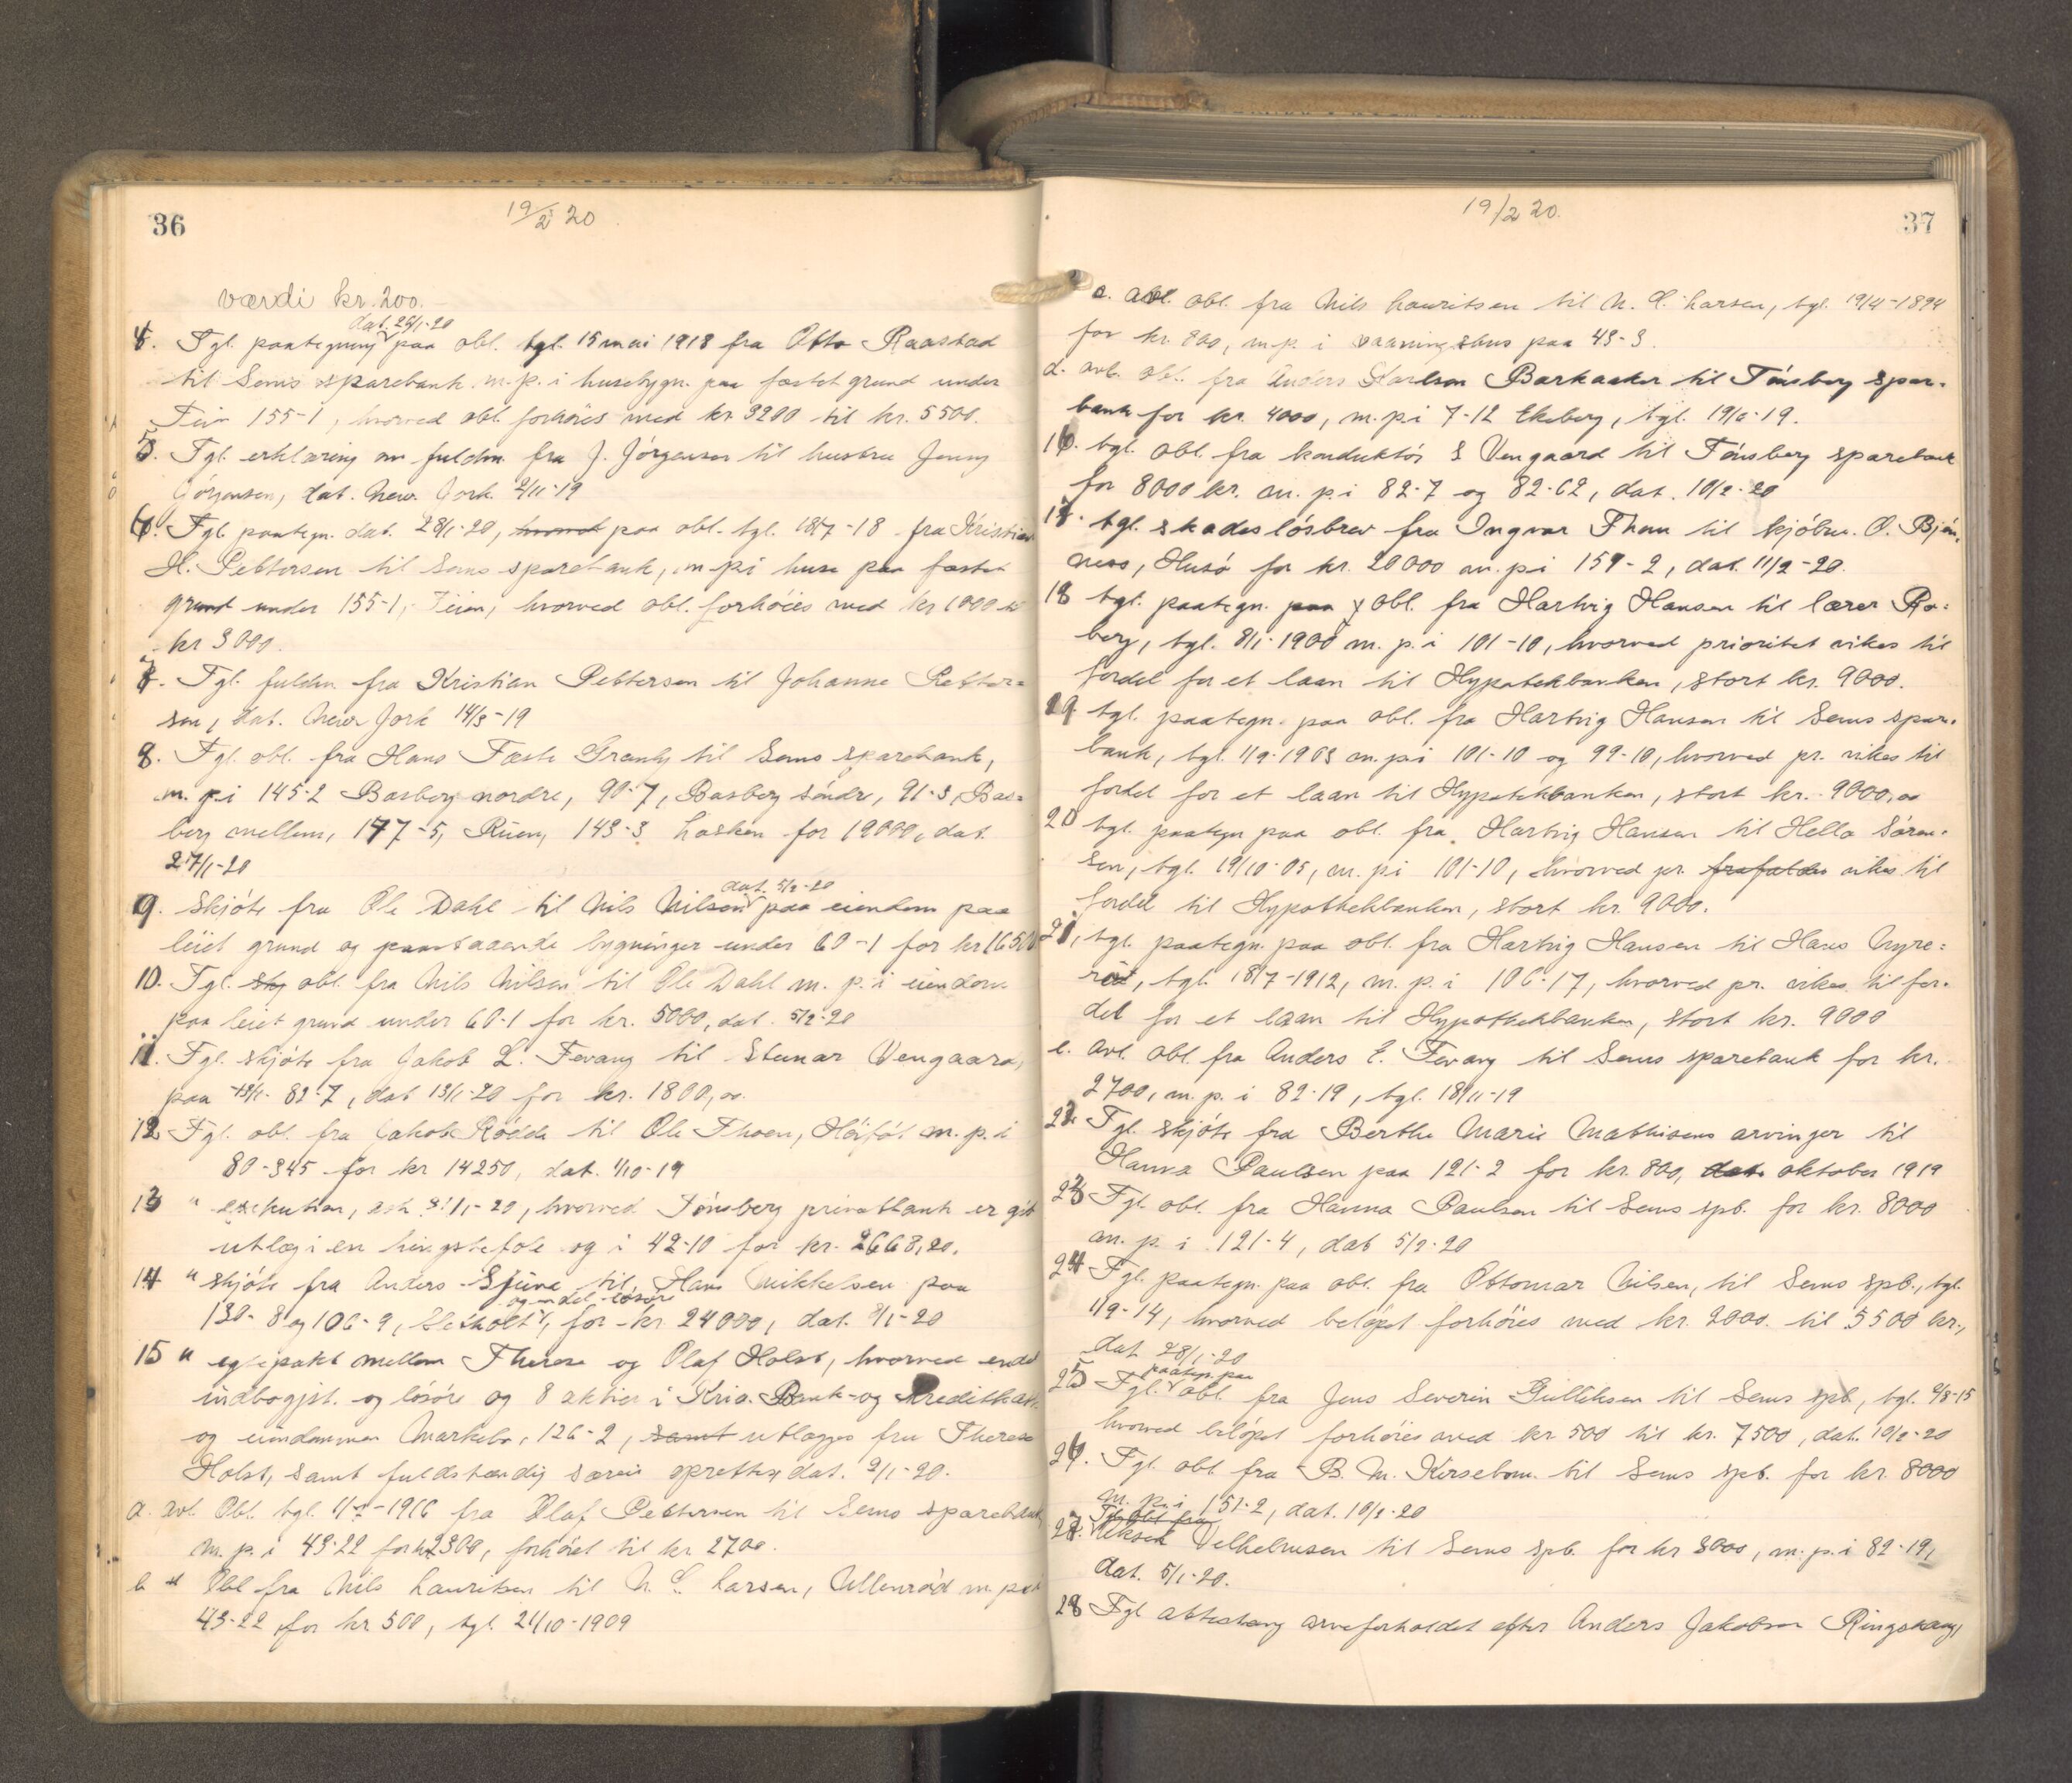 36
19/2 20
værdi kr. 200.
dat. 26/1-20
4. Tgl. paategning paa obl. tgl. 15 mai 1918 fra Otto Raastad
til Sems sparebank m.p. i husebygn. paa fæstet grund under
Teie 155-1, hvorved obl. forhöies med kr. 3200 til kr. 5500.
5. Tgl. erklæring om fuldm. fra J. Jörgensen til hustru Jenny
Jörgensen, dat. New York 2/11-19
6. Tgl. paategn. dat. 28/1-20, paa obl. tgl. 18/7-18 fra Kristian
H. Pettersen til Sems sparebank, m.p. i huse paa fæstet
grund under 155-1, Teien, hvorved obl. forhöies med kr 1000 til
kr 3000.
7. Tgl. fuldm fra Kristian Pettersen til Johanne Petter=
sen, dat. New York 14/3-19
8. Tgl. obl. fra Hans Fæste Granly til Sems sparebank,
m. p. i 145-2 Basberg nordre, 90-7, Basberg söndr, 91-3, Bas=
berg mellem, 177-5, Rüen, 143-3 Lasken for 19000, dat.
27/1-20
dat. 5/2-20
9. Skjöte fra Ole Dahl til Nils Nilsen paa eiendom paa
leiet grund og paastaaende bygninger under 60-1 for kr 16500
10. Tgl. obl. fra Nils Nilsen til Ole Dahl m. p. i eiendom
paa leiet grund under 60-1 for kr. 5000, dat. 5/2-20
11. Tgl. skjöte fra Jakob L. Fevang til Steinar Vengaard,
paa 82-7, dat 13/1-20 for kr. 1800,00.
12 Tgl. obl. fra Jakob Rödde til Ole Thoen, m. p. i
80-345 for kr 14250, dat. 1/10-19
13 " exekution, 1/1-20, hvorved Tönsberg privatbank er git
utlæg i en hingstefole og i 42-10 for kr. 2668,20.
14 " skjöte fra Anders til Hans Mikkelsen paa
og en del lösöre
130-8 og 106-9, for kr. 24000, dat. 8/1-20
15 " egtepakt mellem Therese og Olaf Holst, hvorved endel
indbogjst. og lösöre og 8 aktier i Kria. Bank- og Kreditkasse
og eiendommen Markebo, 126-2, samt utlægges fru Therese
Holst, samt fuldstændig særeie oprettes, dat. 2/1-20.
a. avl. Obl. tgl. -1916 fra Olaf Pettersen til Sems sparebank
m. p. i 43-22 for kr 2300, forhöiet til kr 2700.
b " Obl fra Nils Lauritsen til N. L. Larsen, Ullenröd m. p. i
43-22, for kr 500, tgl. 21/10-1909
19/2 20.
37
c. avl. obl. fra Nils Lauritsen til N. L. Larsen, tgl. 19/4-1894
for kr. 800, m.p. i vaaningshus paa 43-3.
d. avl. obl. fra Anders Karlsen Barkaaker til Tönsberg spar-
bank for kr. 4000, m.p. i 7-12 Ekeberg, tgl. 19/6-19.
16. tgl. obl. fra konduktör S Vengaard til Tönsberg sparebank
for 8000 kr. m. p. i 82-7 og 82-62, dat. 10/2-20
17. tgl. skadeslösbrev fra Ingvar Thau til kjöbm. O. Bjön-
ness, Husö for kr. 20000 m. p. i 159-2, dat. 11/2-20.
18 tgl. paategn. paa obl. fra Hartvig Hansen til lærer Ro=
berg, tgl. 8/1-1900 m. p. i 101-10, hvorved prioritet vikes til
fordel for et laan til Hypotekbanken, stort kr. 9000.
19. tgl. paategn. paa obl. fra Hartvig Hansen til Sems spar-
bank, tgl. 1/9-1903 m. p. i 101-10 og 99-10, hvorved pr. vikes til
fordel for et laan til Hypotekbanken, stort kr. 9000,00
20 tgl. paategn paa obl. fra Hartvig Hansen til Hella Sören-
sen, tgl. 19/10-05, m. p. i 101-10, hvorved pr. frafaldes vikes til
fordel til Hypothekbanken, stort kr. 9000.
21. tgl. paategn. paa obl. fra Hartvig Hansen til Hans Nyre=
röd, tgl. 18/7-1912, m. p. i 106-17, hvorved pr. vikes til for-
del for et laan til Hypothekbanken, stort kr. 9000
e. avl. obl. fra Anders E. Fevang til Sems sparebank for kr.
2700, m. p. i 82-19, tgl. 18/11-19
22. Tgl. skjöte fra Berthe Marie Mathisens arvinger til
Hanna Paulsen paa 121-2 for kr. 800, dat. oktober 1919
23 Tgl. obl. fra Hanna Paulsen til Sems spb. for kr. 8000
m. p. i 121-4, dat 5/2-20
24 Tgl. paategn. paa obl. fra Ottomar Nilsen, til Sems spb., tgl.
1/9-14, hvorved belöpet forhöies med kr. 2000. til 5500 kr.,
dat 28/1-20
paategn. paa
25 Tgl. obl. fra Jens Severin Gulliksen til Sems spb, tgl. 9/8-15
hvorved belöpet forhöies med kr 500 til kr. 7500, dat. 10/2-20
26. Tgl. obl fra B. M. Kirsebom. til Sems spb. for kr. 8000
m. p. i 151-2, dat. 10/2-20
Tgl. obl fra
27. Velhelmsen til Sems spb. for kr 3000, m. p. i 82-19,
dat. 5/1-20.
28 Tgl arveforholdet efter Anders Jakobsen Ringshaug,